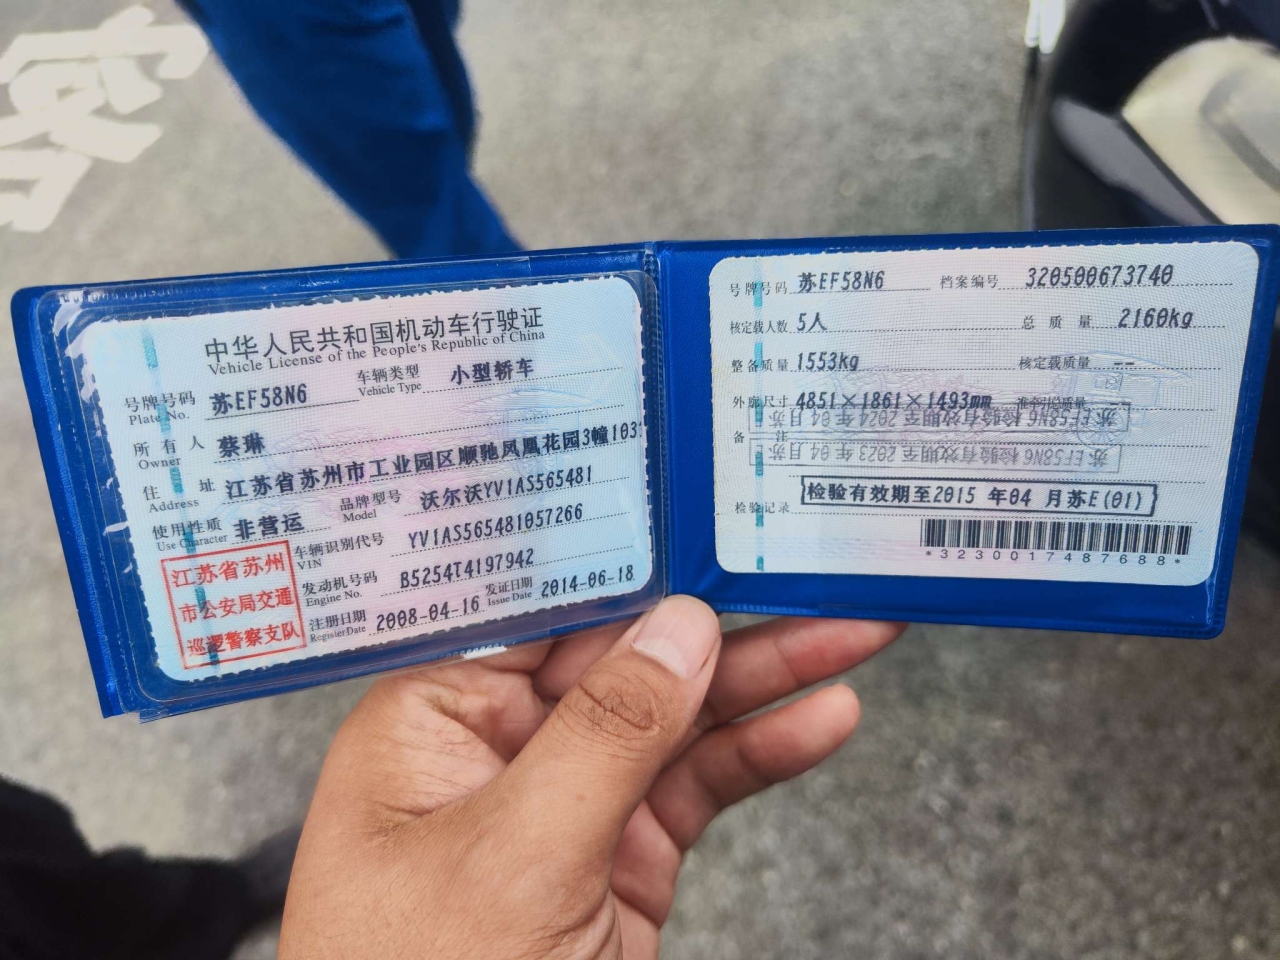 中华人民共和国机动车行驶证
Vehicle License of the People's Republic of China
号牌号码 苏EF58N6 车辆类型 小型轿车
Plate No. Vehicle Type
所有人 蔡琳
Owner
住址 江苏省苏州市工业园区顺驰凤凰花园3幢103
Address
使用性质 非营运 品牌型号 沃尔沃YV1AS565481
Use Character Model
江苏省苏州
市公安局交通
巡逻警察支队
车辆识别代号 YV1AS565481057266
VIN
发动机号码 B5254T4197942
Engine No.
注册日期 2008-04-16 发证日期 2014-06-18
Register Date Issue Date
号牌号码 苏EF58N6 档案编号 320500673740
核定载人数 5人 总质量 2160kg
整备质量 1553kg 核定载质量 --
外廓尺寸 4851×1861×1493mm 准牵引总质量 --
苏EF58N6 检验有效期至 2024 年 04 月
备注
苏EF58N6 检验有效期至 2023 年 04 月
检验记录 检验有效期至2015 年04 月苏E(01)
*3230017487688*